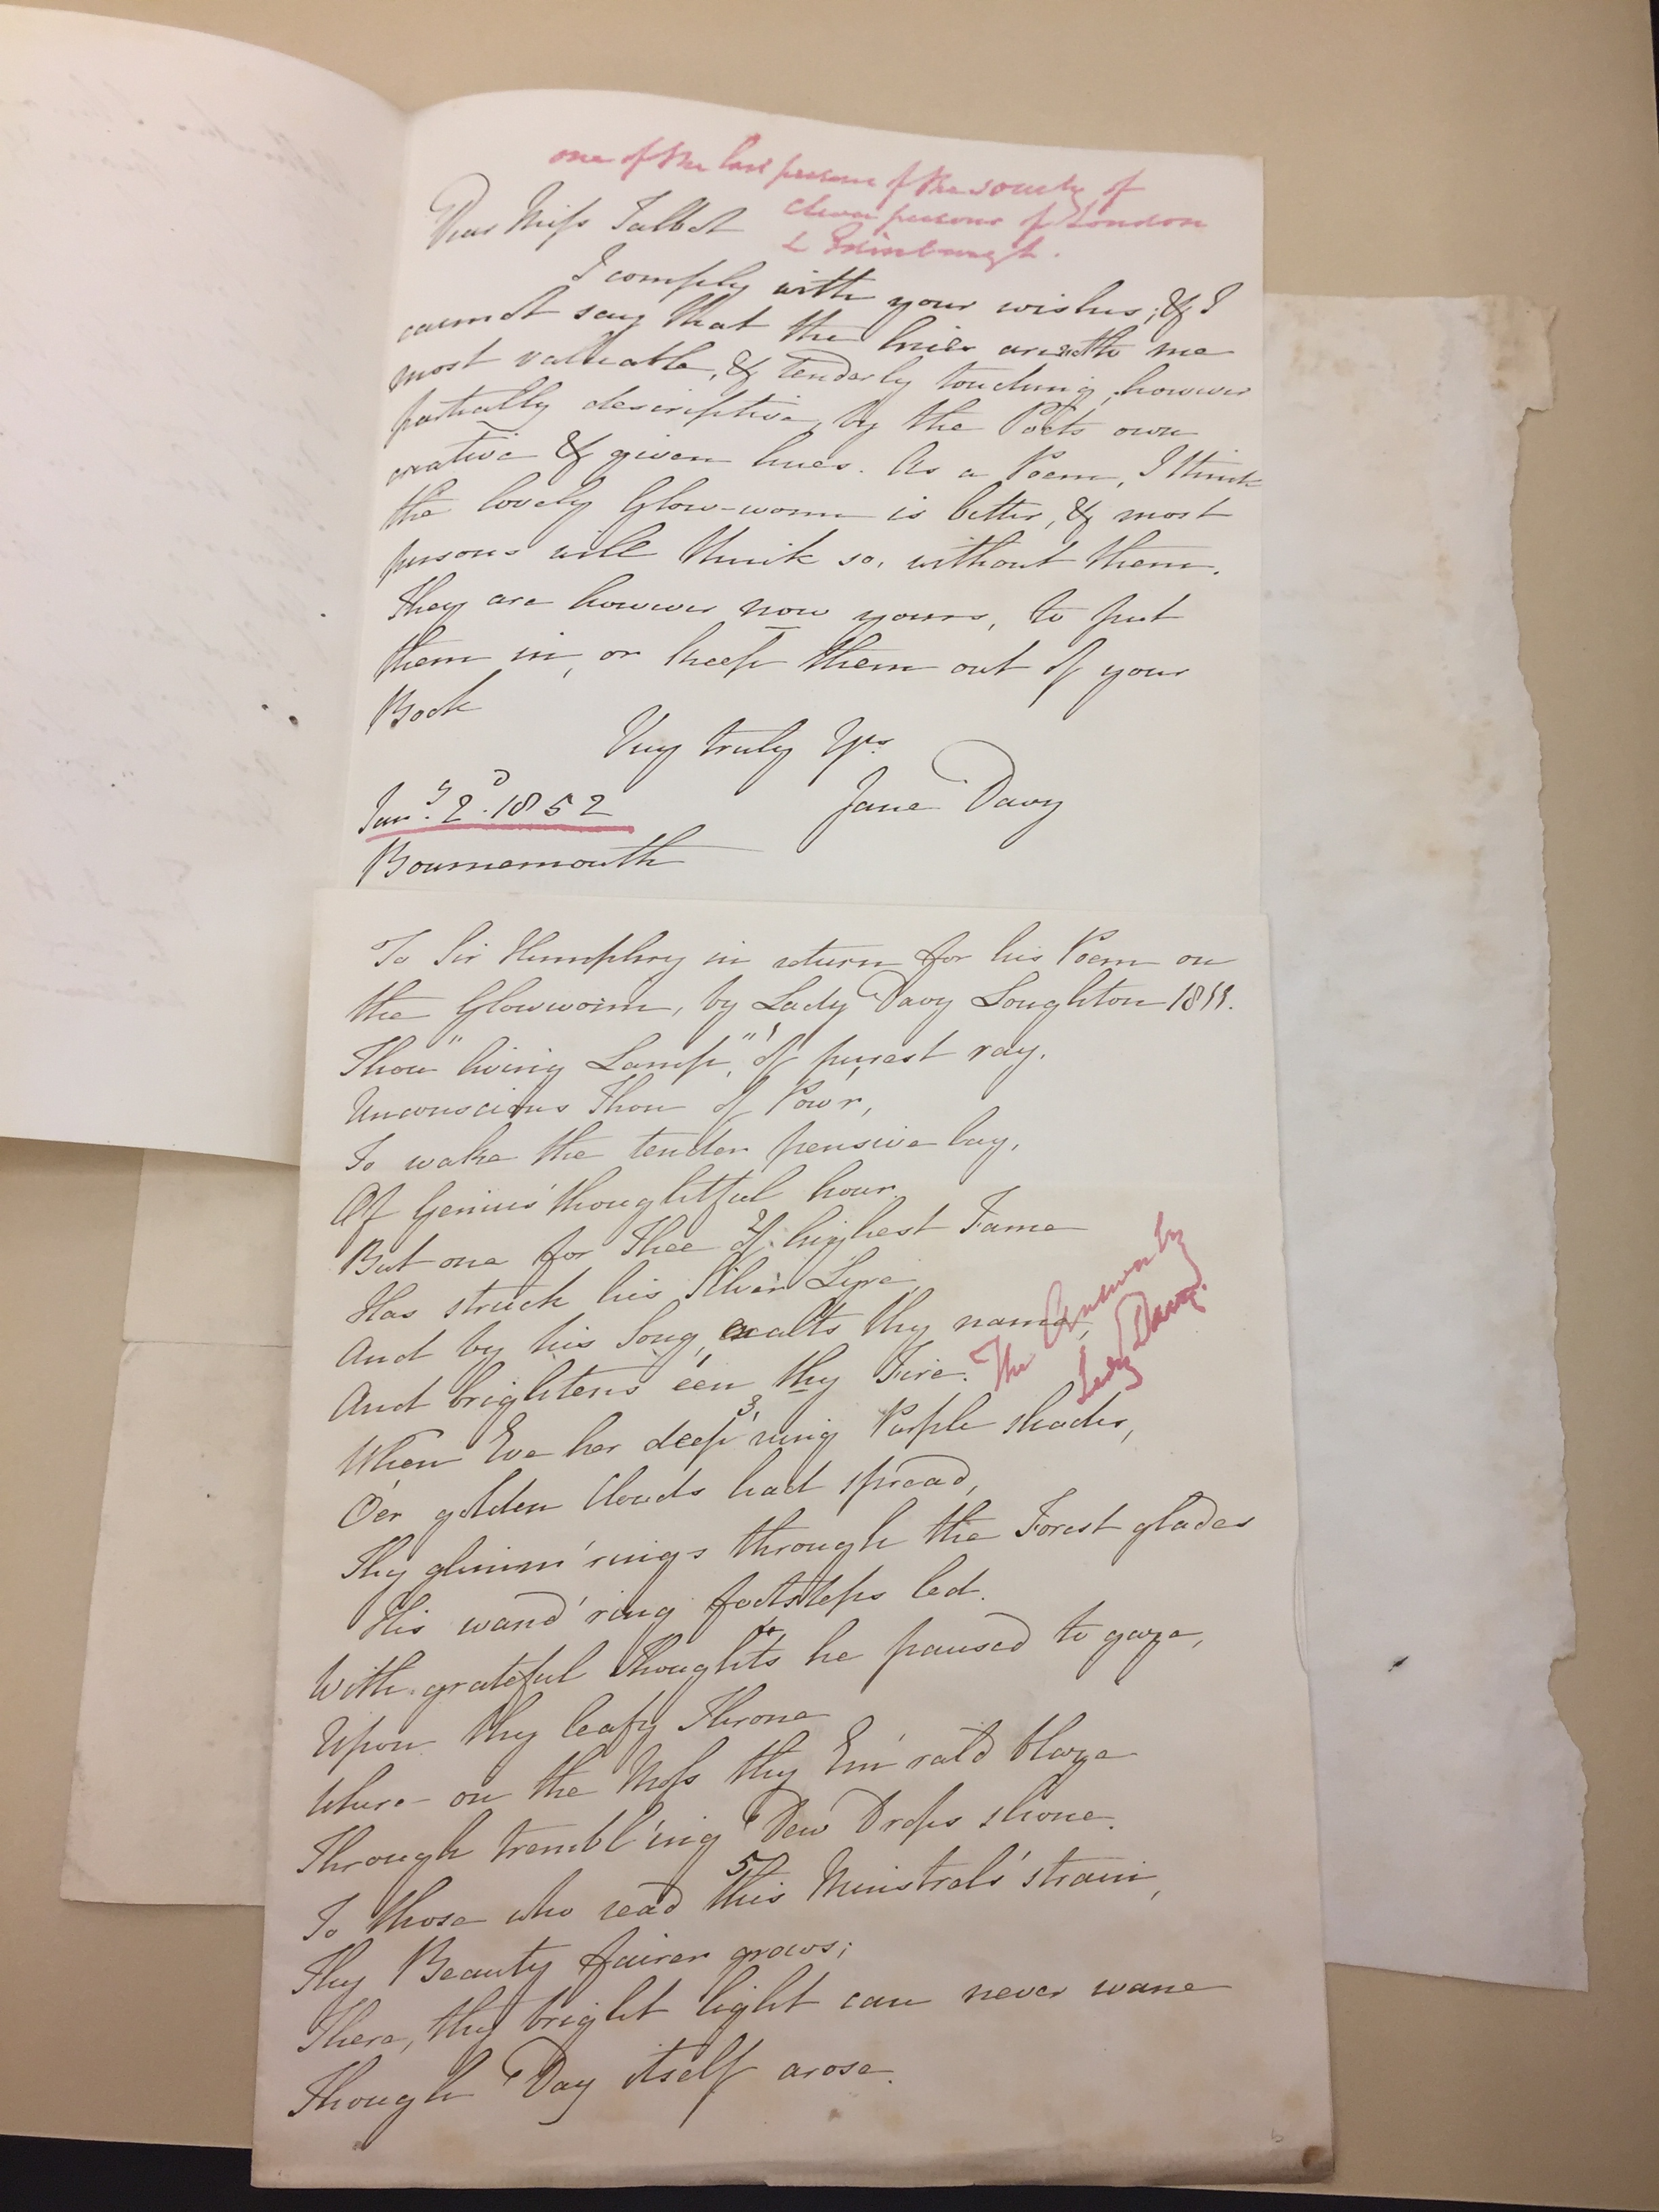 one of the last persons of the society of
clever persons of London
& Edinburgh.
Dear Miss Talbot
I comply with your wishes; & I
cannot say that the lines are to me
most valuable, & tenderly touching, however
partially descriptive, by the Poets own
creative & given hues. As a Poem, I think
the lovely Glow-worm is better, & most
persons will think so, without them.
They are however now yours, to put
them in, or keep them out of your
Book
Very truly Yrs
Jane Davy
Jany. 2d. 1852
Bournemouth
To Sir Humphry in return for his Poem on
the Glowworm, by Lady Davy Loughton 1811.
1
Thou "living Lamp", of purest ray.
Unconscious Thou of Pow'r,
To wake the tender pensive lay,
Of Genius' thoughtful hour.
2
But one for Thee of highest Fame
Has struck his Silver Lyre
And by his Song, exalts thy name,
And brightens e'en thy Fire.
The Answer by
Lady Davy.
3
When Eve her deep'ning Purple shades,
O'er golden Clouds had spread,
Thy glimm'rings through the Forest glades
His wand'ring footsteps led.
4
With grateful Thoughts he paused to gaze,
Upon thy leafy Throne
Where on the Moss thy Em'rald blaze
Through trembl'ing Dew Drops shone.
5
To those who read this Minstrals' strain,
Thy Beauty fairer grows;
There, thy bright light can never wane
Though Day itself arose.